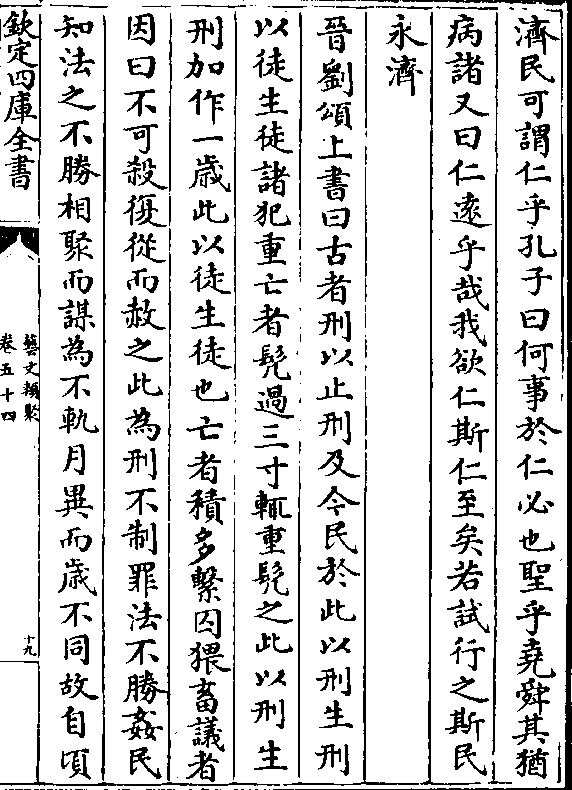 濟民可謂仁乎孔子曰何事於仁必也聖乎堯舜其猶
病諸又曰仁遠乎哉我欲仁斯仁至矣若試行之斯民
永濟
晉劉頌上書曰古者刑以止刑及今民於此以刑生刑
以徒生徒諸犯重亡者髠過三寸輒重髠之此以刑生
刑加作一歳此以徒生徒也亡者積多繫囚猥畜議者
因曰不可殺復從而赦之此為刑不制罪法不勝姦民
知法之不勝相聚而謀為不軌月異而歳不同故自頃
欽定四庫全書
藝文類聚
卷五十四
十九